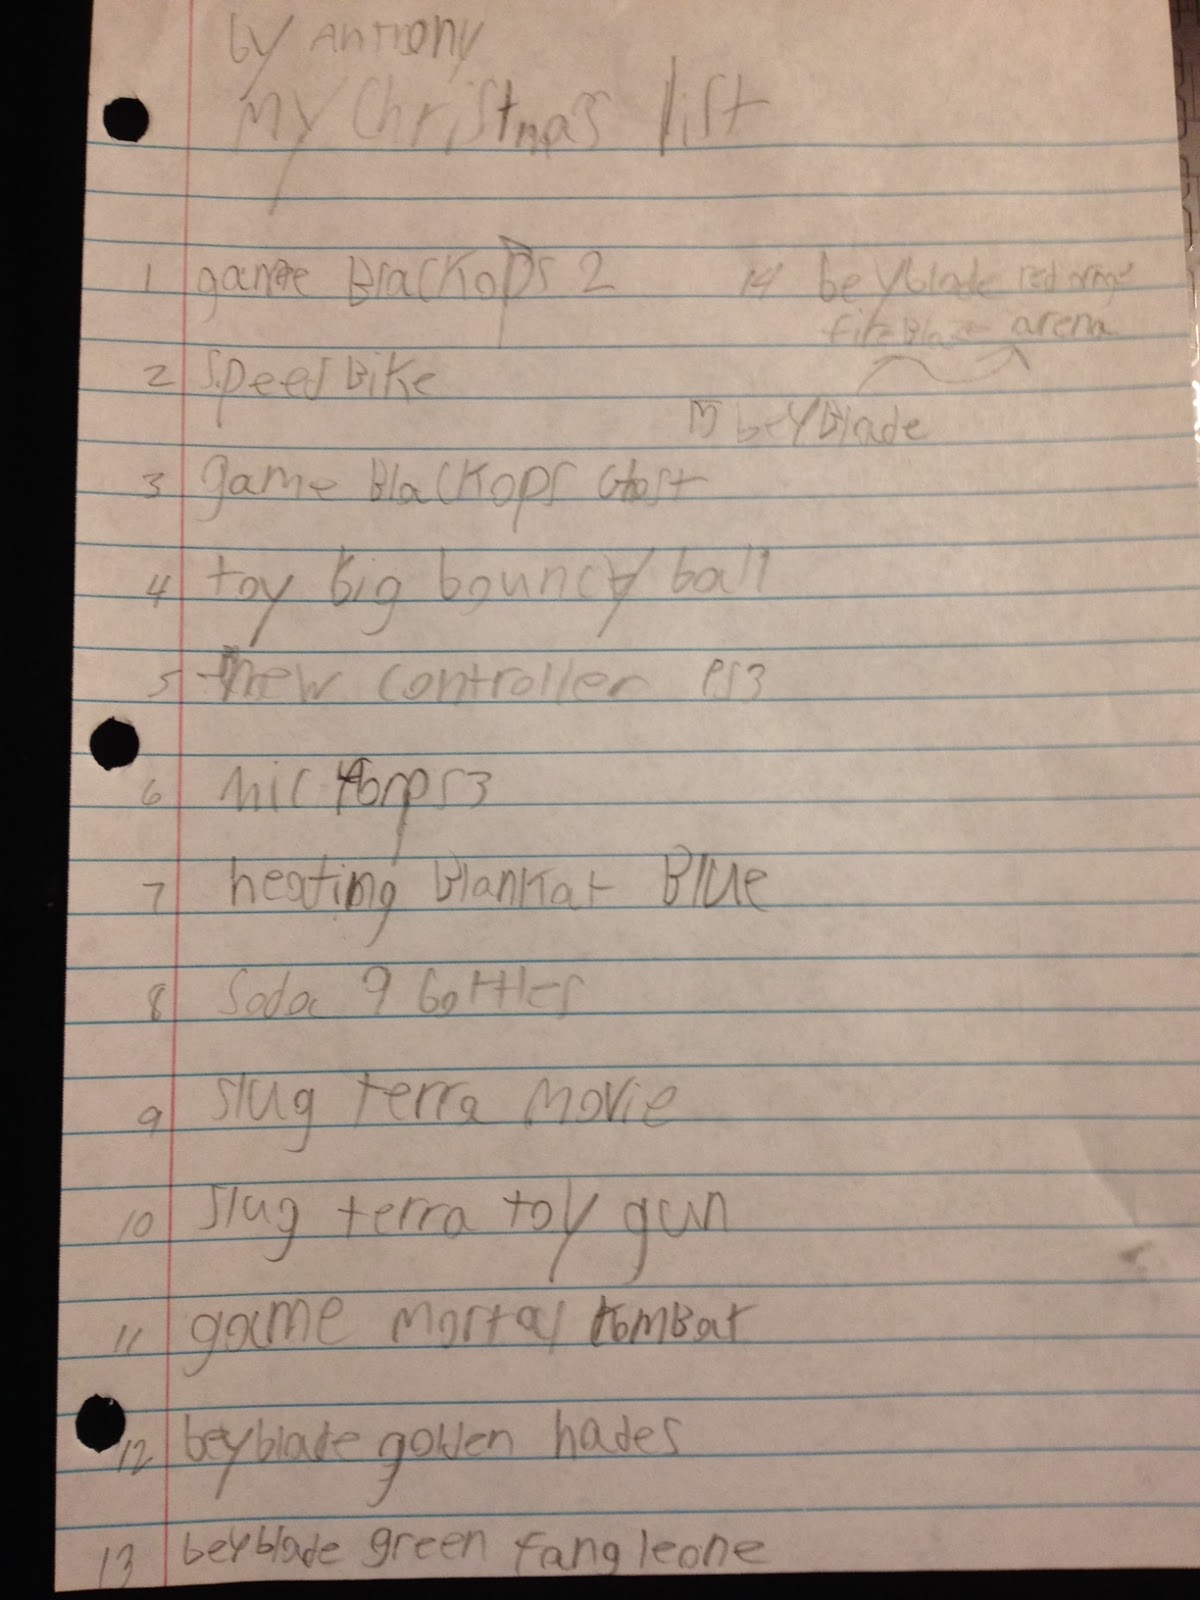 by Anthony
My Christmas list
1 game Blackops 2
2 speed Bike
3 game Blackops Gost
4 toy big bouncy ball
5 new controller PS3
6 mic for ps3
7 heating Blankat Blue
8 Soda 9 bottles
9 slug terra movie
10 slug terra toy gun
11 game mortal kombat
12 beyblade golden hades
13 beyblade green fang leone
14 beyblade red
fire Blaze arena
15 beyBlade